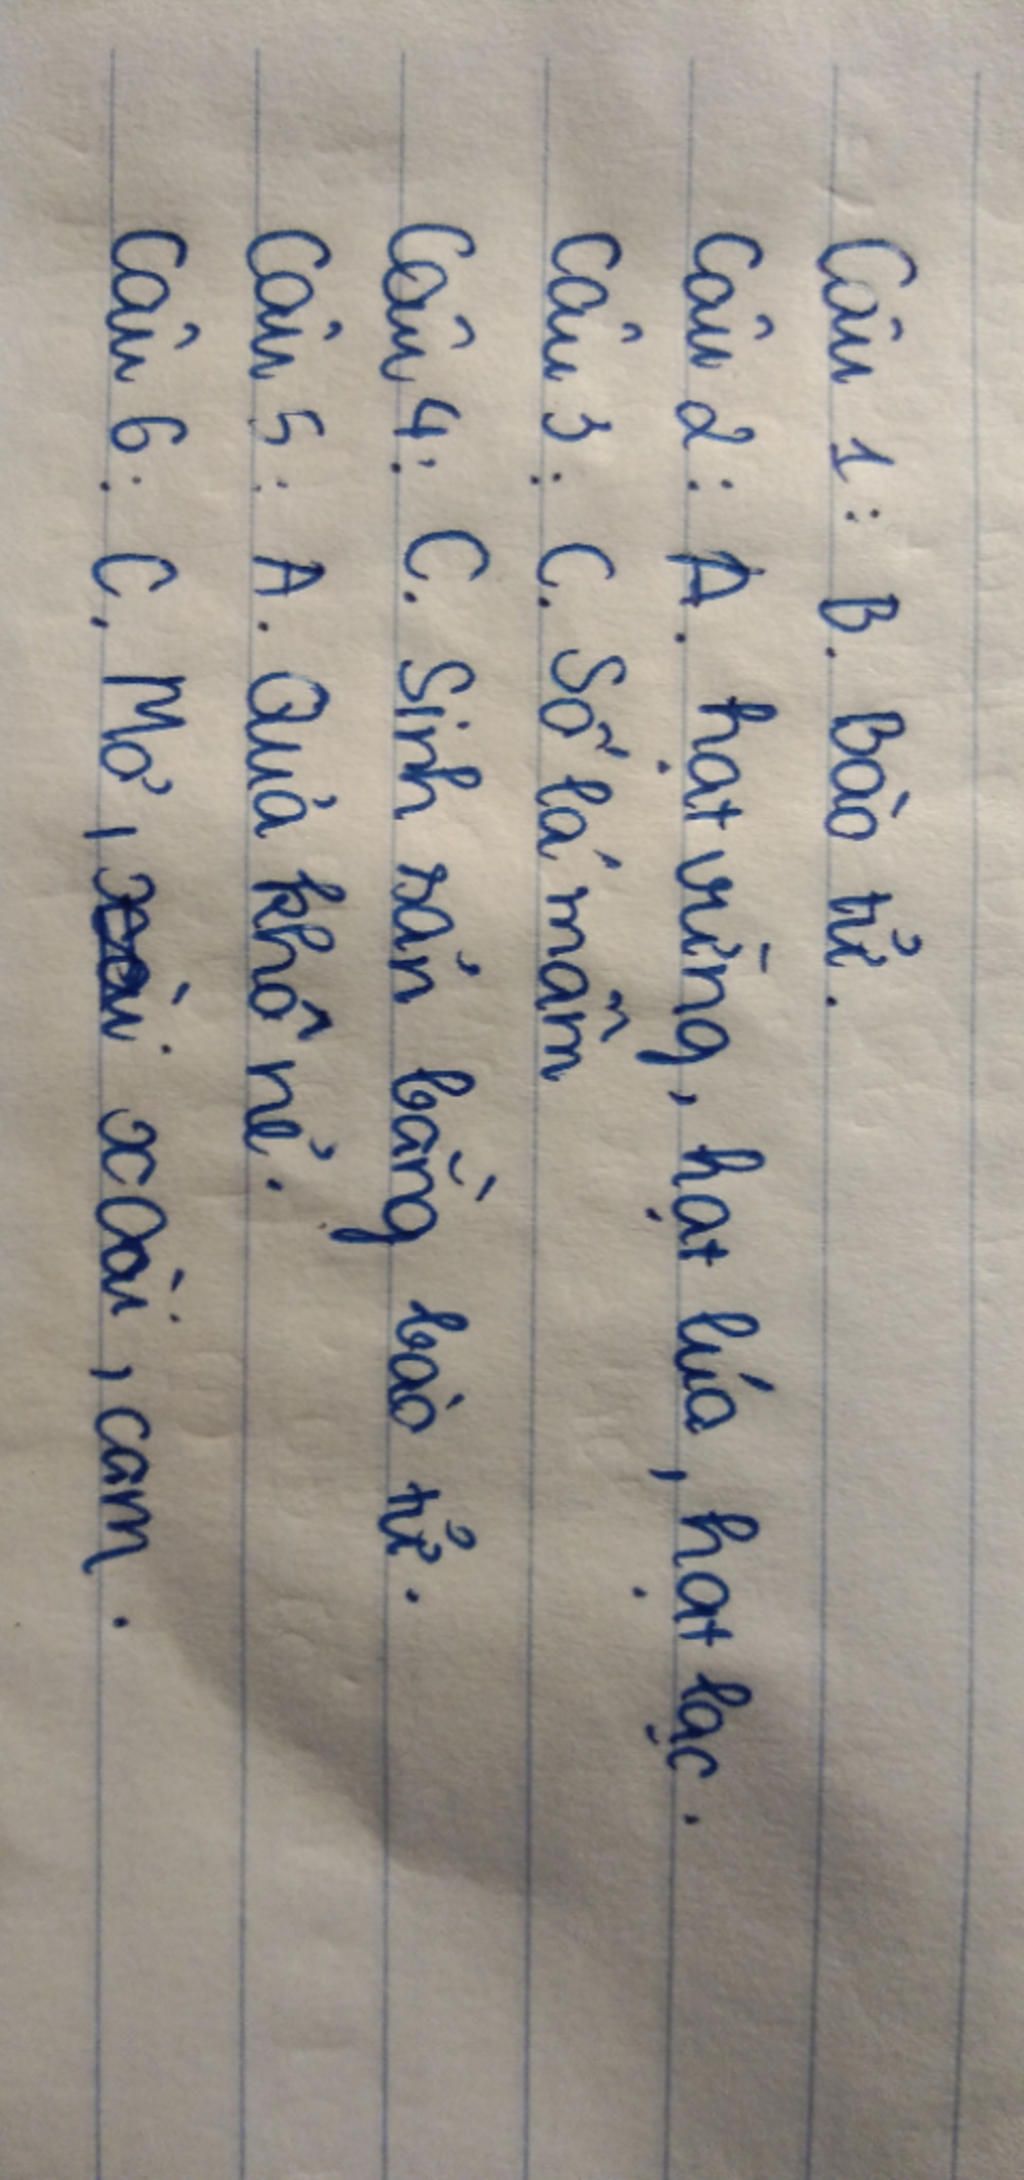 Câu 1: B. Bào tử.
Câu 2: A. hạt vừng, hạt lúa, hạt lạc.
Câu 3: C. Số lá mầm
Câu 4: C. Sinh sản bằng bào tử.
Câu 5: A. Quả khô nẻ.
Câu 6: C. Mơ, xoài, cam.